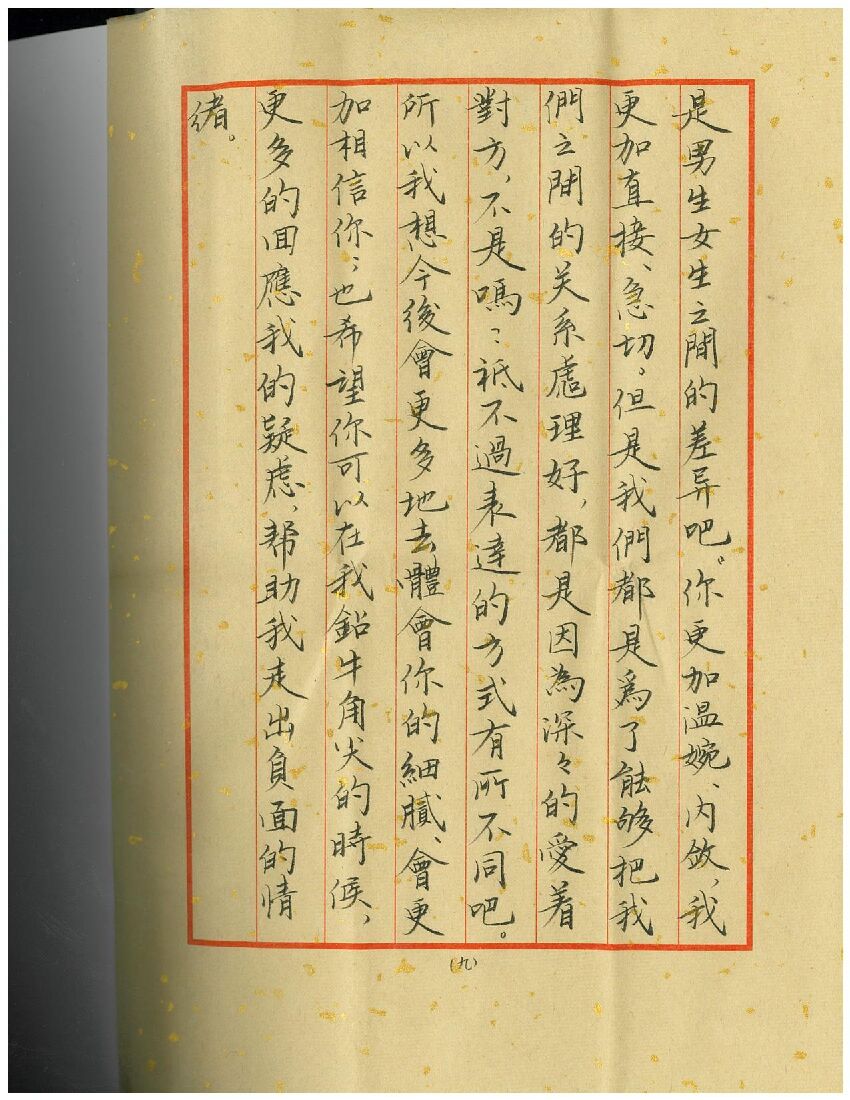 是男生女生之間的差异吧。你更加温婉、内敛，我
更加直接、急切。但是我們都是爲了能够把我
們之間的关系處理好，都是因為深々的愛着
對方，不是嗎；衹不過表達的方式有所不同吧。
所以我想今後會更多地去體會你的細膩、會更
加相信你；也希望你可以在我鉛牛角尖的時候，
更多的回應我的疑虑，帮助我走出負面的情
绪。
(九)